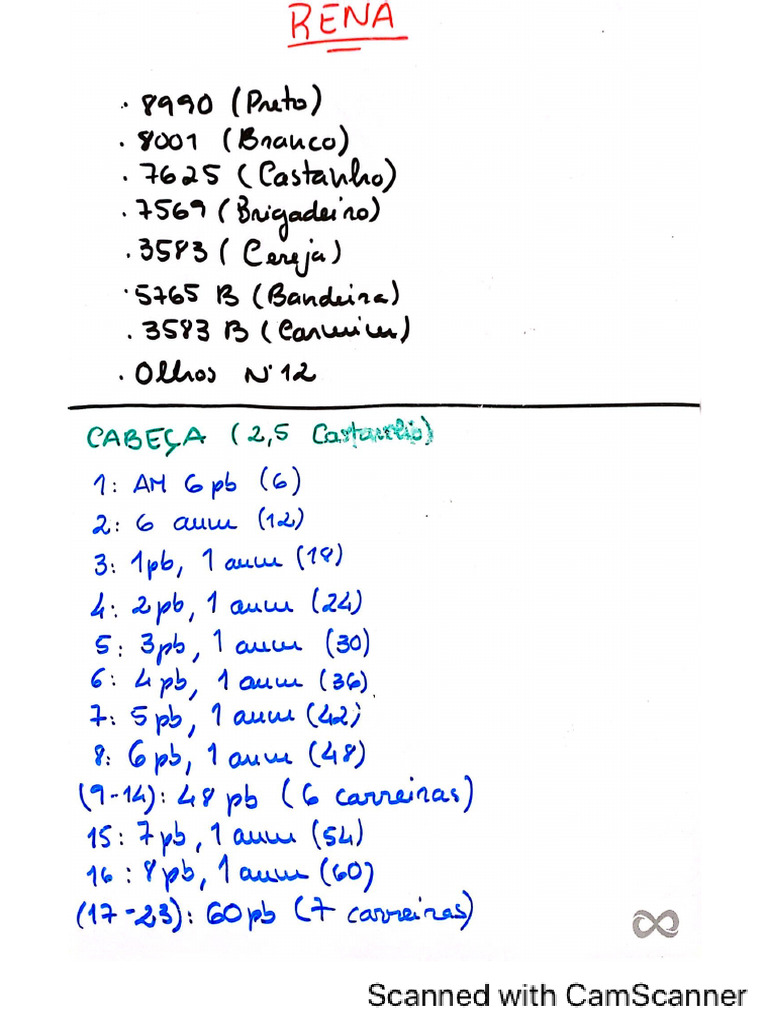 RENA
· 8990 (Preto)
· 8001 (Branco)
· 7625 (Castanho)
· 7569 (Brigadeiro)
· 3583 (Cereja)
· 5765 B (Bandeira)
· 3583 B (Carmim)
· Olhos Nº 12
CABEÇA (2,5 Castanho)
1: AM 6 pb (6)
2: 6 aum (12)
3: 1pb, 1 aum (18)
4: 2pb, 1 aum (24)
5: 3pb, 1 aum (30)
6: 4pb, 1 aum (36)
7: 5pb, 1 aum (42)
8: 6pb, 1 aum (48)
(9-14): 48 pb (6 carreiras)
15: 7pb, 1 aum (54)
16: 8pb, 1 aum (60)
(17-23): 60pb (7 carreiras)
Scanned with CamScanner